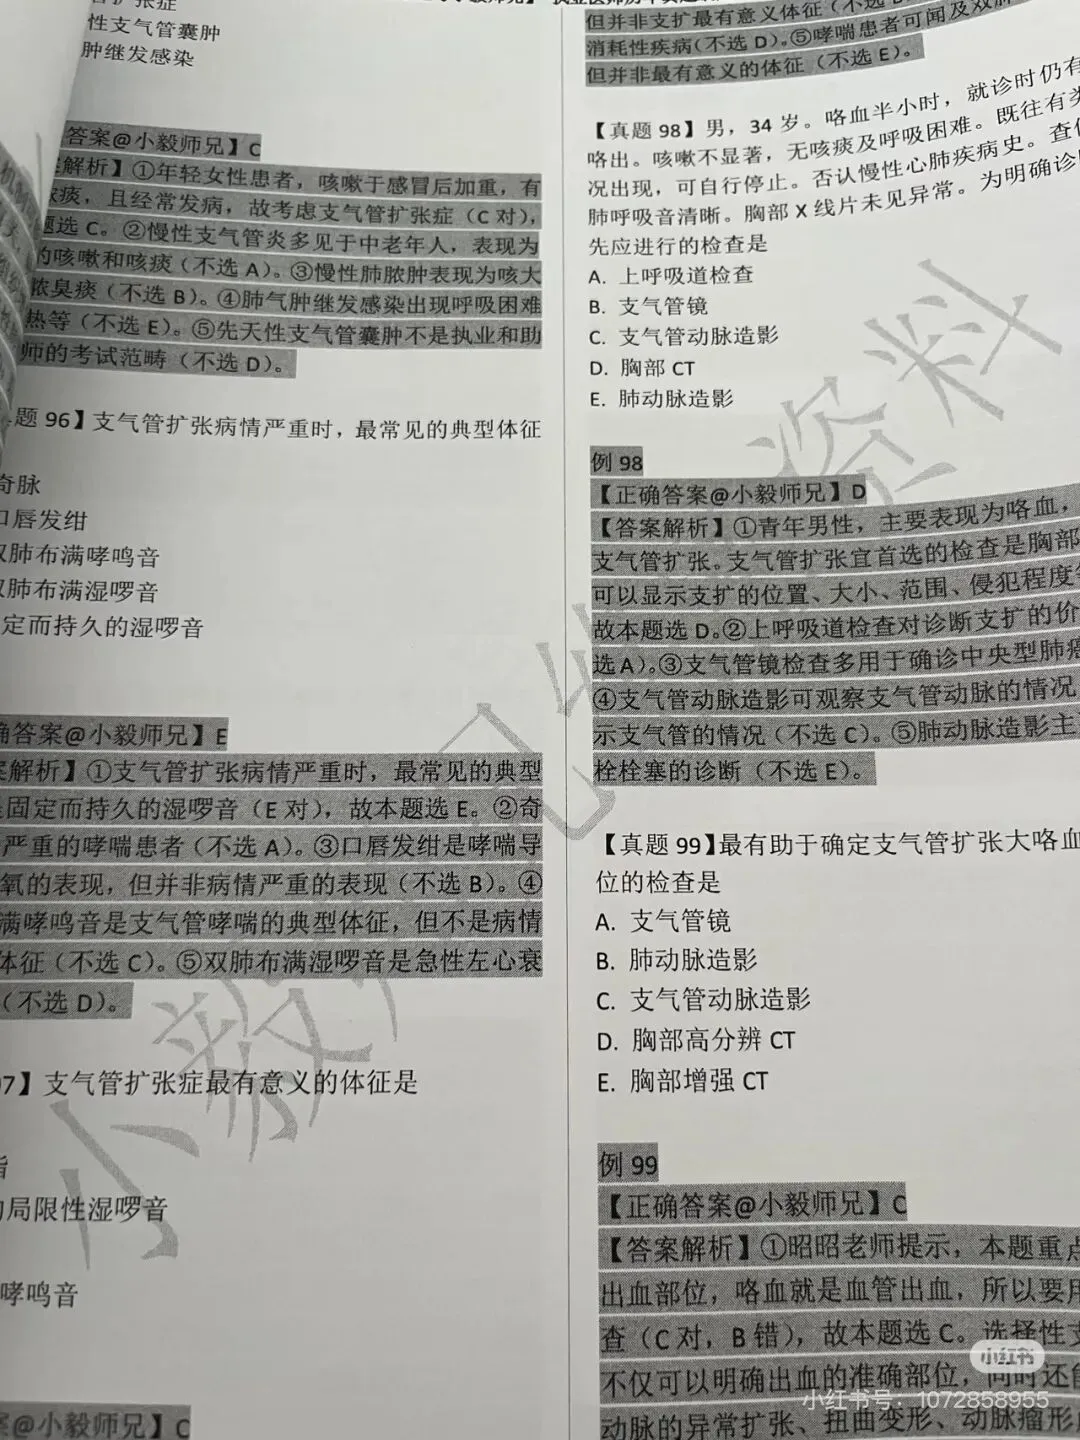 扩张症
性支气管囊肿
肿继发感染
答案@小毅师兄】C
解析】①年轻女性患者，咳嗽于感冒后加重，有
浓痰，且经常发病，故考虑支气管扩张症（C 对），
题选 C。②慢性支气管炎多见于中老年人，表现为
的咳嗽和咳痰（不选 A）。③慢性肺脓肿表现为咳大
脓臭痰（不选 B）。④肺气肿继发感染出现呼吸困难
热等（不选 E）。⑤先天性支气管囊肿不是执业和助
师的考试范畴（不选 D）。
题 96】支气管扩张病情严重时，最常见的典型体征
奇脉
口唇发绀
双肺布满哮鸣音
双肺布满湿啰音
定而持久的湿啰音
确答案@小毅师兄】E
案解析】①支气管扩张病情严重时，最常见的典型
固定而持久的湿啰音（E 对），故本题选 E。②奇
严重的哮喘患者（不选 A）。③口唇发绀是哮喘导
氧的表现，但并非病情严重的表现（不选 B）。④
满哮鸣音是支气管哮喘的典型体征，但不是病情
体征（不选 C）。⑤双肺布满湿啰音是急性左心衰
（不选 D）。
97】支气管扩张症最有意义的体征是
指
局限性湿啰音
哮鸣音
案@小毅师兄】C
但并非支扩最有意义体征（不选
消耗性疾病（不选 D）。⑤哮喘患者可闻及双肺
但并非最有意义的体征（不选 E）。
【真题 98】男，34 岁。咯血半小时，就诊时仍有
咯出。咳嗽不显著，无咳痰及呼吸困难。既往有类
况出现，可自行停止。否认慢性心肺疾病史。查体
肺呼吸音清晰。胸部 X 线片未见异常。为明确诊
先应进行的检查是
A. 上呼吸道检查
B. 支气管镜
C. 支气管动脉造影
D. 胸部 CT
E. 肺动脉造影
例 98
【正确答案@小毅师兄】D
【答案解析】①青年男性，主要表现为咯血，
支气管扩张。支气管扩张宜首选的检查是胸部
可以显示支扩的位置、大小、范围、侵犯程度等
故本题选 D。②上呼吸道检查对诊断支扩的价
选 A）。③支气管镜检查多用于确诊中央型肺癌
④支气管动脉造影可观察支气管动脉的情况
示支气管的情况（不选 C）。⑤肺动脉造影主
栓栓塞的诊断（不选 E）。
【真题 99】最有助于确定支气管扩张大咯血
位的检查是
A. 支气管镜
B. 肺动脉造影
C. 支气管动脉造影
D. 胸部高分辨 CT
E. 胸部增强 CT
例 99
【正确答案@小毅师兄】C
【答案解析】①昭昭老师提示，本题重点
出血部位，咯血就是血管出血，所以要用
查（C 对，B 错），故本题选 C。选择性支
不仅可以明确出血的准确部位，同时还能
动脉的异常扩张、扭曲变形、动脉瘤形
小红书
小红书号：1072858955